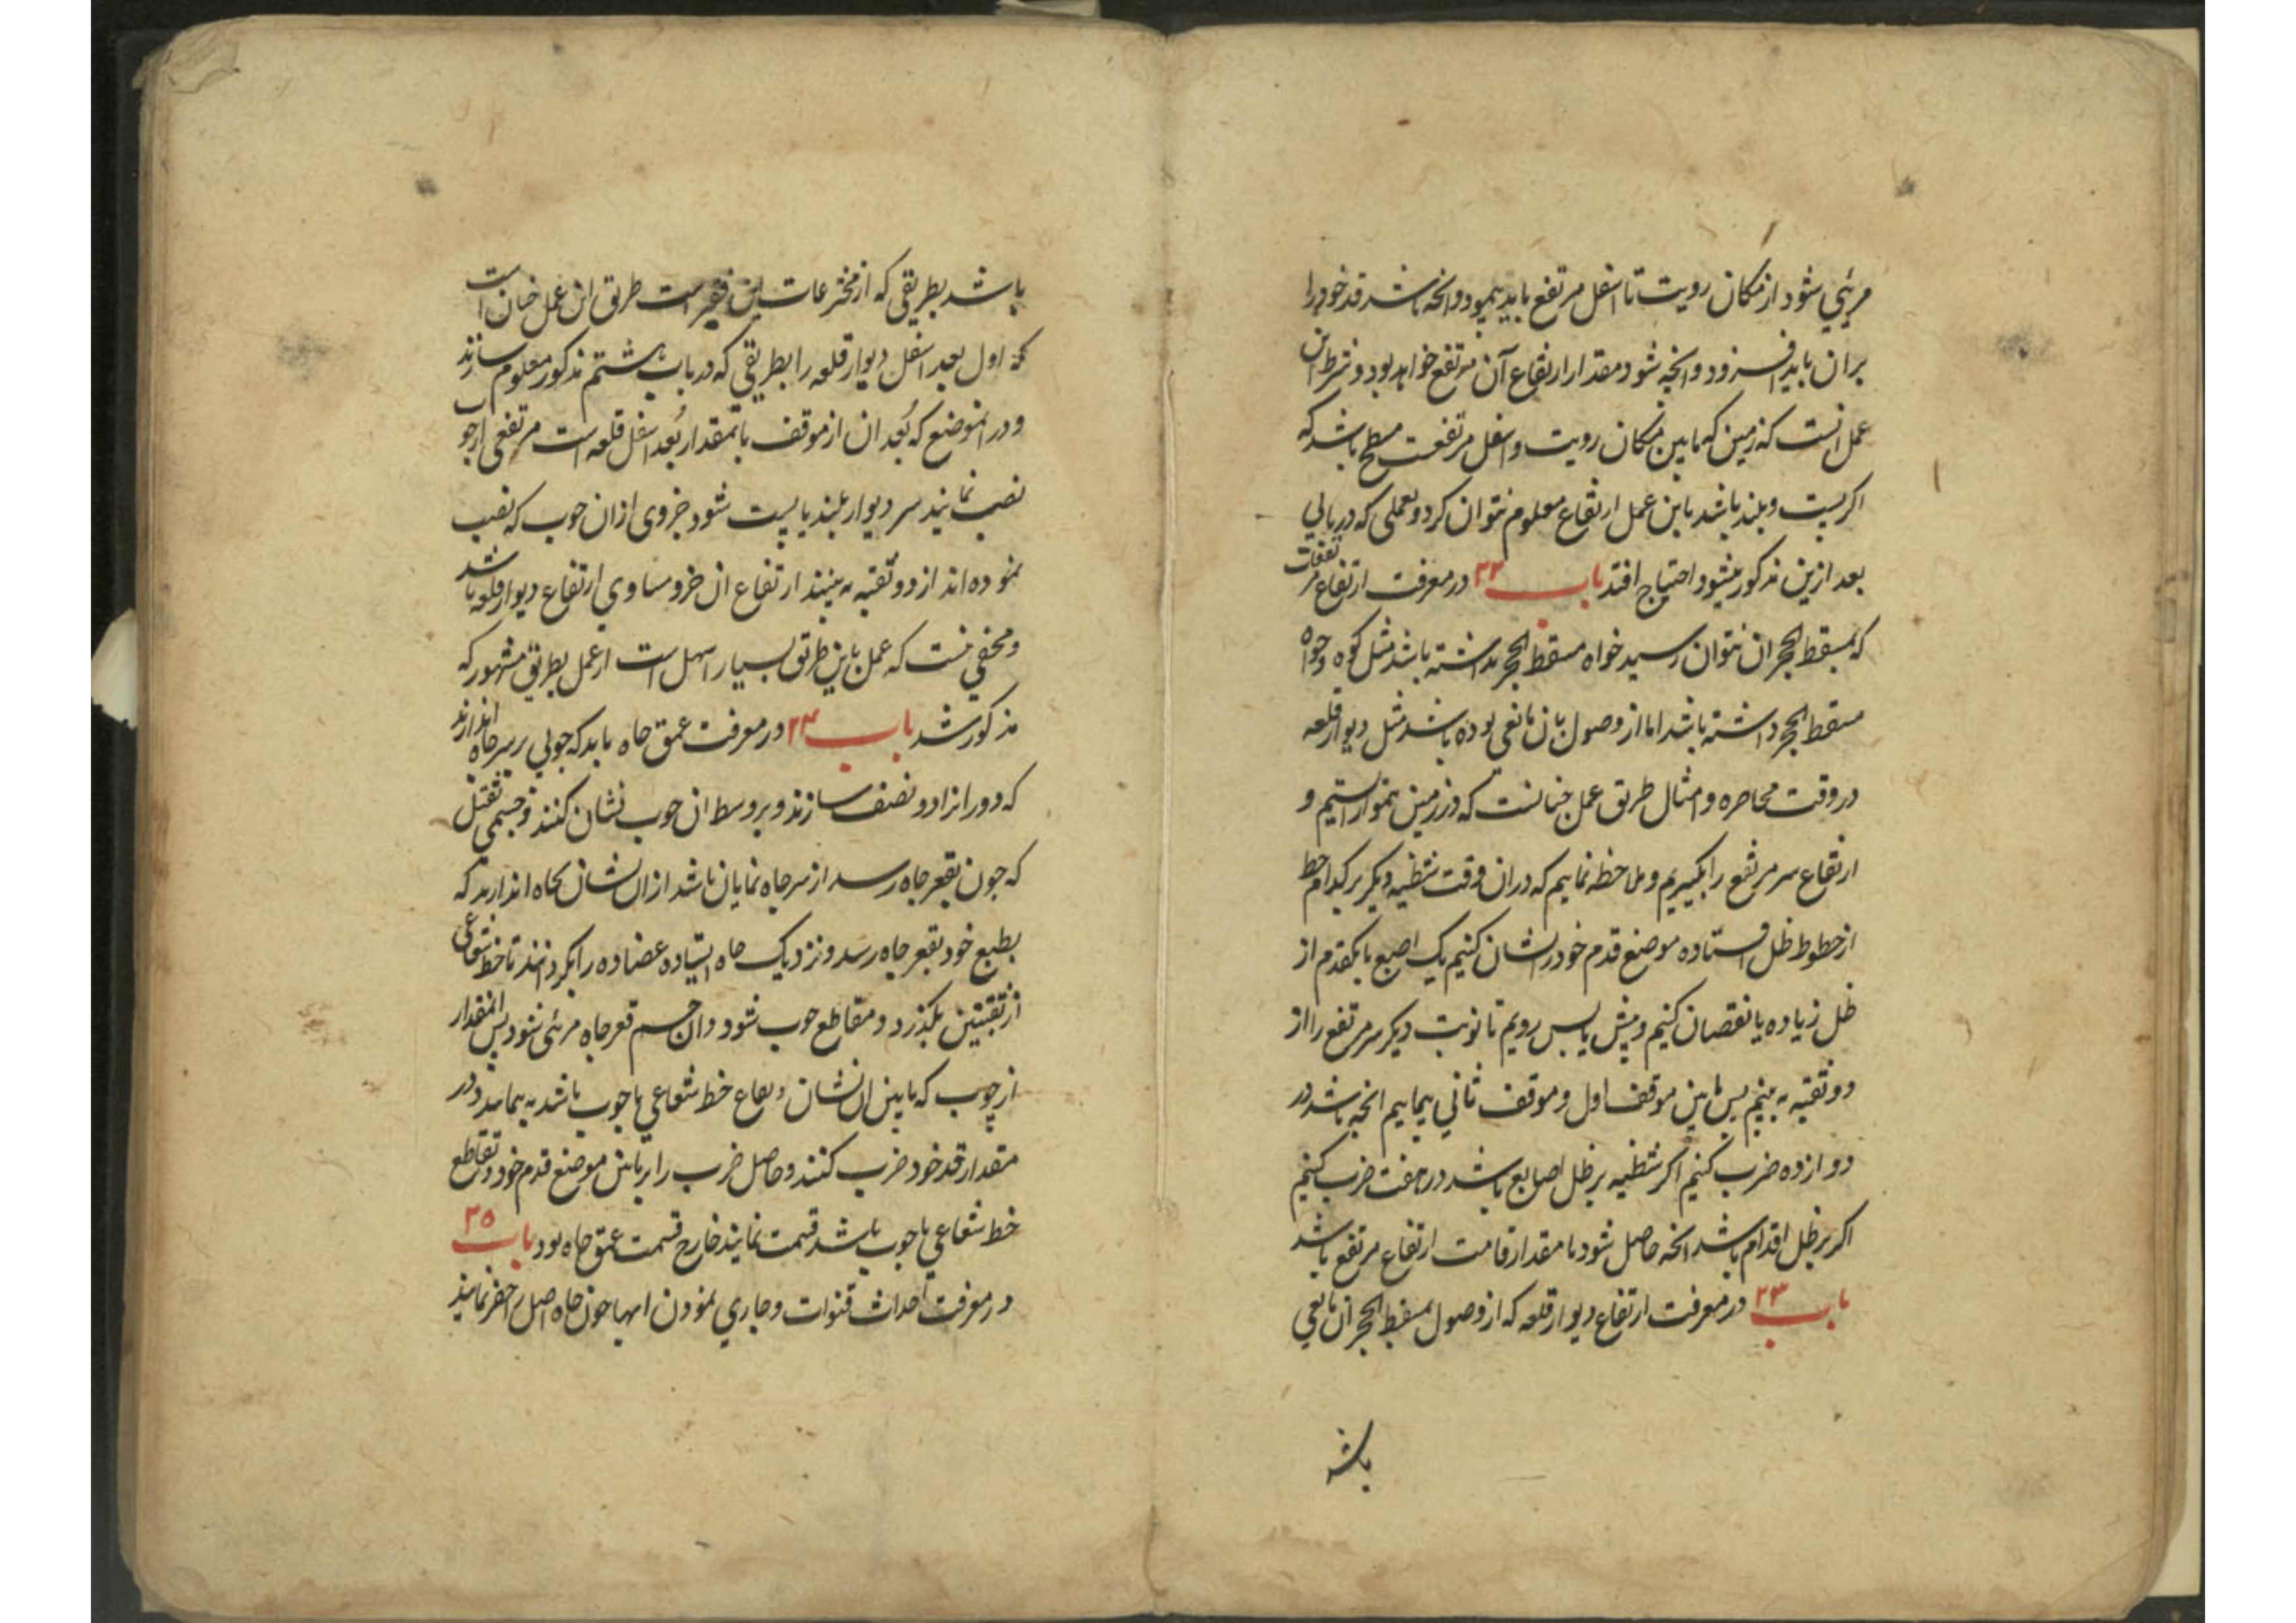 مرئي شود از مكان رويت تا اسفل مرتفع بايد پيمود و انچه باشد قد خود را
بران بايد افزود و انچه شود مقدار ارتفاع آن مرتفع خواهد بود و شرط اين
عمل انست كه زمين كه مابين مكان رويت و اسفل مرتفعست مسطح باشد كه
اكر پست و بلند باشد باين عمل ارتفاع معلوم نتوان كرد و بعملي كه در بابي
بعد ازين مذكور ميشود احتياج افتد باب ٢٢ در معرفت ارتفاع مرتفعات
كه بمسقط الحجر ان نتوان رسيد خواه مسقط الحجر نداشته باشد مثل كوه و خواه
مسقط الحجر داشته باشد اما از وصول بان مانعي بوده باشد مثل ديوار قلعه
در وقت محاصره و امثال طريق عمل چنانست كه در زمين هموار استيم و
ارتفاع سر مرتفع را بكيريم و ملاحظه نماييم كه دران وقت شظيه ديكر بر كدام خط
از خطوط ظل افتاده موضع قدم خود را نشان كنيم يك اصبع يا يكقدم از
ظل زياده يا نقصان كنيم و پيش يا پس رويم تا نوبت ديكر سر مرتفع را از
دو ثقبه به بينيم پس مابين موقف اول و موقف ثاني پيماييم انچه باشد در
دوازده ضرب كنيم اكر شظيه بر ظل اصابع باشد در هفت ضرب كنيم
اكر بر ظل اقدام باشد انچه حاصل شود با مقدار قامت ارتفاع مرتفع باشد
باب ٢٣ در معرفت ارتفاع ديوار قلعه كه از وصول بمسقط الحجر ان مانعي
باشد
باشد بطريقي كه از مخترعات اين فقير است طريق اين عمل چنان است
كه اول بعد اسفل ديوار قلعه را بطريقي كه در باب بيستم مذكور معلوم سازند
و در انموضع كه بُعد ان از موقف بمقدار بُعد اسفل قلعه است مرتفعي از چوب
نصب نمايند سر ديوار بلند يا پست شود جزوى ازان چوب كه نصب
نموده اند از دو ثقبه به بينند ارتفاع ان جزو مساوي ارتفاع ديوار قلعه باشد
و مخفي نيست كه عمل باين طريق بسيار اسهل است از عمل بطريق مشهور كه
مذكور شد باب ٢٤ در معرفت عمق چاه بايد كه چوبي بر سر چاه اندازند
كه دور انرا دو نصف سازند و بر وسط ان چوب نشان كنند و جسمي ثقيل
كه چون بقعر چاه رسد از سر چاه نمايان باشد ازان نشان بچاه اندازند كه
بطبع خود بقعر چاه رسد و نزديك چاه ايستاده عضاده را بكردانند تا خط شعاعي
از ثقبتين بكذرد و مقاطع چوب شود و ان جسم قعر چاه مرئى شود پس انمقدار
از چوب كه مابين ان نشان و تقاطع خط شعاعي با چوب باشد به پيمايند و در
مقدار قد خود ضرب كنند و حاصل ضرب را بر مابين موضع قدم خود و تقاطع
خط شعاعي با چوب باشد قسمت نمايند خارج قسمت عمق چاه بود باب ٢٥
در معرفت احداث قنوات و جاري نمودن ابها چون چاه اصل را حفر نمايند